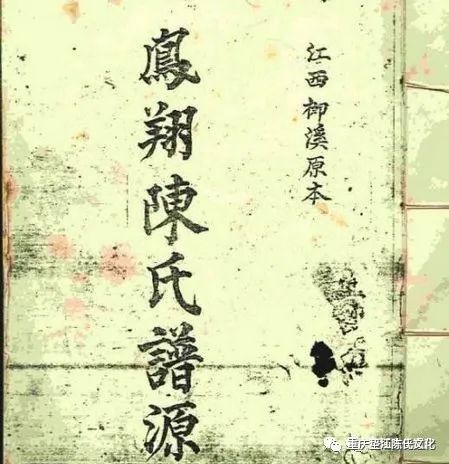 江西柳溪原本
鳳翔陳氏譜源
重庆垫江陈氏文化